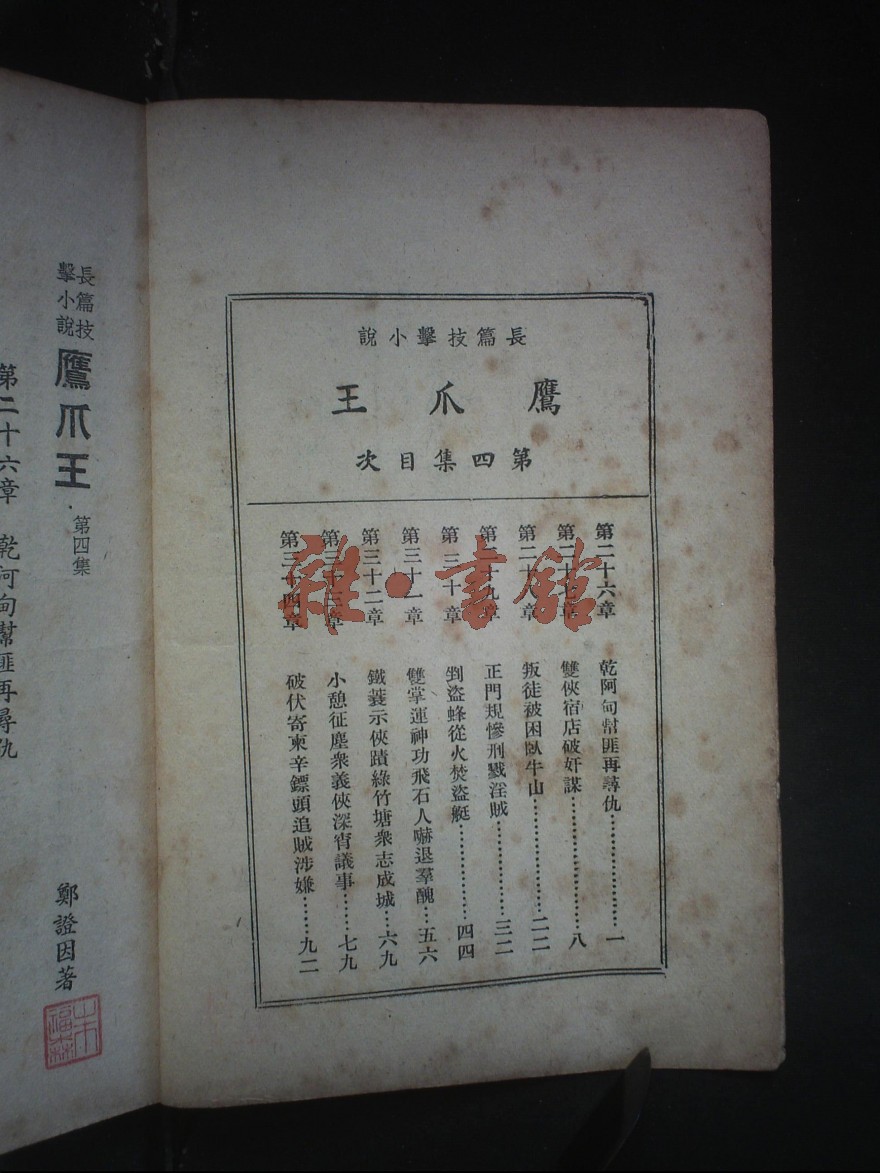 長篇技擊小說
鷹爪王
第四集目次
第二十六章 乾阿甸幫匪再尋仇………………一
第二十七章 雙俠宿店破奸謀………………八
第二十八章 叛徒被困臥牛山………………二二
第二十九章 正門規慘刑戮淫賊………………三二
第三十章 剉盜蜂從火焚盜艇………………四四
第三十一章 雙掌運神功飛石人嚇退羣醜…五六
第三十二章 鐵蓑示俠蹟綠竹塘衆志成城…六九
第三十三章 小憩征塵衆義俠深宵議事……七九
第三十四章 破伏寄柬辛鏢頭追賊涉嫌……九二
長篇技擊小說
鷹爪王
第四集
鄭證因著
第二十六章 乾阿甸幫匪再尋仇
雜·書館